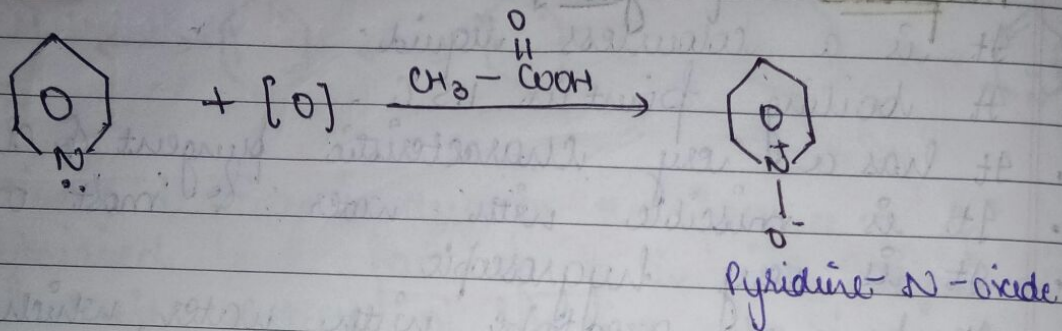 O
||
+ [O] CH3 - COOH
N
+
N
O-
Pyridine-N-oxide